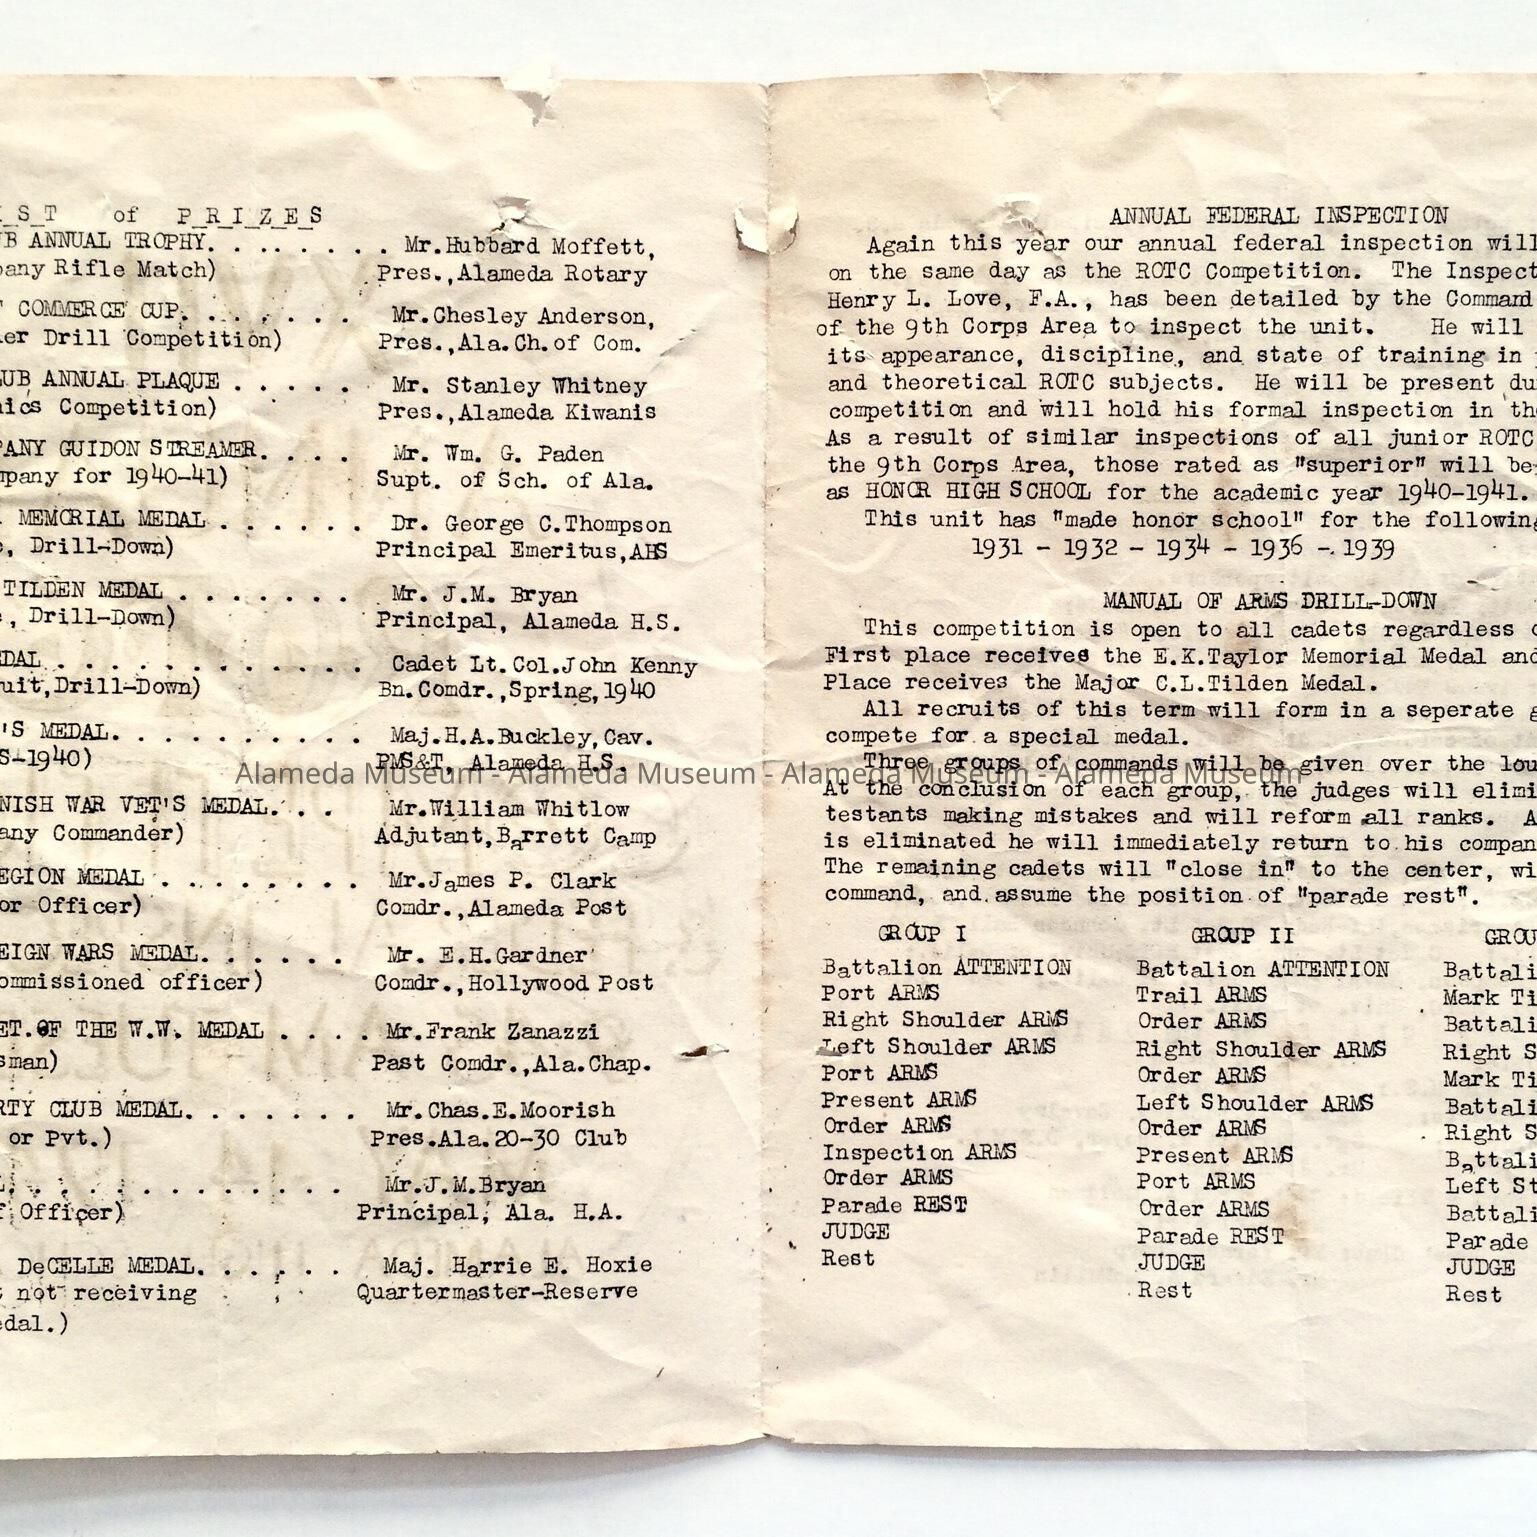 IST of PRIZES
UB ANNUAL TROPHY. . . . . . . . Mr.Hubbard Moffett,
pany Rifle Match) Pres.,Alameda Rotary
COMMERCE CUP. . . . . . . Mr.Chesley Anderson,
er Drill Competition) Pres.,Ala.Ch.of Com.
LUB ANNUAL PLAQUE . . . . . Mr. Stanley Whitney
ics Competition) Pres.,Alameda Kiwanis
PANY GUIDON STREAMER. . . . Mr. Wm. G. Paden
mpany for 1940-41) Supt. of Sch. of Ala.
MEMORIAL MEDAL . . . . . . Dr. George C.Thompson
, Drill-Down) Principal Emeritus,AHS
TILDEN MEDAL . . . . . . . Mr. J.M. Bryan
, Drill-Down) Principal, Alameda H.S.
EDAL . . . . . . . . . . . . Cadet Lt.Col.John Kenny
uit,Drill-Down) Bn.Comdr.,Spring,1940
'S MEDAL. . . . . . . . . . Maj.H.A.Buckley,Cav.
S-1940) PMS&T, Alameda H.S.
NISH WAR VET'S MEDAL. . . Mr.William Whitlow
any Commander) Adjutant,Barrett Camp
EGION MEDAL . . . . . . . . Mr.James P. Clark
or Officer) Comdr.,Alameda Post
EIGN WARS MEDAL. . . . . . Mr. E.H.Gardner
ommissioned officer) Comdr.,Hollywood Post
ET.OF THE W.W. MEDAL . . . . Mr.Frank Zanazzi
sman) Past Comdr.,Ala.Chap.
RTY CLUB MEDAL. . . . . . . Mr.Chas.E.Moorish
or Pvt.) Pres.Ala.20-30 Club
. . . . . . . . . . . . Mr.J.M.Bryan
f Officer) Principal, Ala. H.A.
DeCELLE MEDAL. . . . . . Maj. Harrie E. Hoxie
not receiving Quartermaster-Reserve
edal.)
ANNUAL FEDERAL INSPECTION
Again this year our annual federal inspection will
on the same day as the ROTC Competition. The Inspect
Henry L. Love, F.A., has been detailed by the Command
of the 9th Corps Area to inspect the unit. He will
its appearance, discipline, and state of training in
and theoretical ROTC subjects. He will be present du
competition and will hold his formal inspection in the
As a result of similar inspections of all junior ROTC
the 9th Corps Area, those rated as "superior" will be
as HONOR HIGH SCHOOL for the academic year 1940-1941.
This unit has "made honor school" for the following
1931 - 1932 - 1934 - 1936 - 1939
MANUAL OF ARMS DRILL-DOWN
This competition is open to all cadets regardless o
First place receives the E.K.Taylor Memorial Medal and
Place receives the Major C.L.Tilden Medal.
All recruits of this term will form in a seperate g
compete for a special medal.
Three groups of commands will be given over the lou
At the conclusion of each group, the judges will elimi
testants making mistakes and will reform all ranks. A
is eliminated he will immediately return to his compan
The remaining cadets will "close in" to the center, wi
command, and assume the position of "parade rest".
GROUP I GROUP II GROU
Battalion ATTENTION Battalion ATTENTION Battali
Port ARMS Trail ARMS Mark Ti
Right Shoulder ARMS Order ARMS Battali
Left Shoulder ARMS Right Shoulder ARMS Right S
Port ARMS Order ARMS Mark Ti
Present ARMS Left Shoulder ARMS Battali
Order ARMS Order ARMS Right S
Inspection ARMS Present ARMS Battali
Order ARMS Port ARMS Left St
Parade REST Order ARMS Battali
JUDGE Parade REST Parade
Rest JUDGE JUDGE
Rest Rest
Alameda Museum - Alameda Museum - Alameda Museum - Alameda Museum